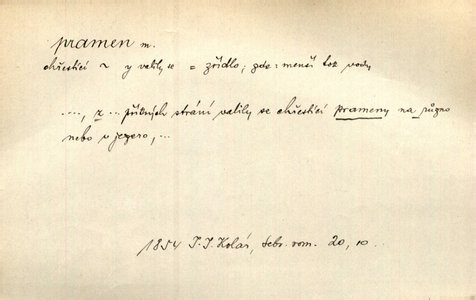 pramen m.
chřestící ~ y valily se = zřídlo; zde: menší tok vody
...., z ... příkrých strání valily se chřestící prameny na
nebo v jezero, ...
1854 J. J. Kolár, Sebr. rom. 20, 10